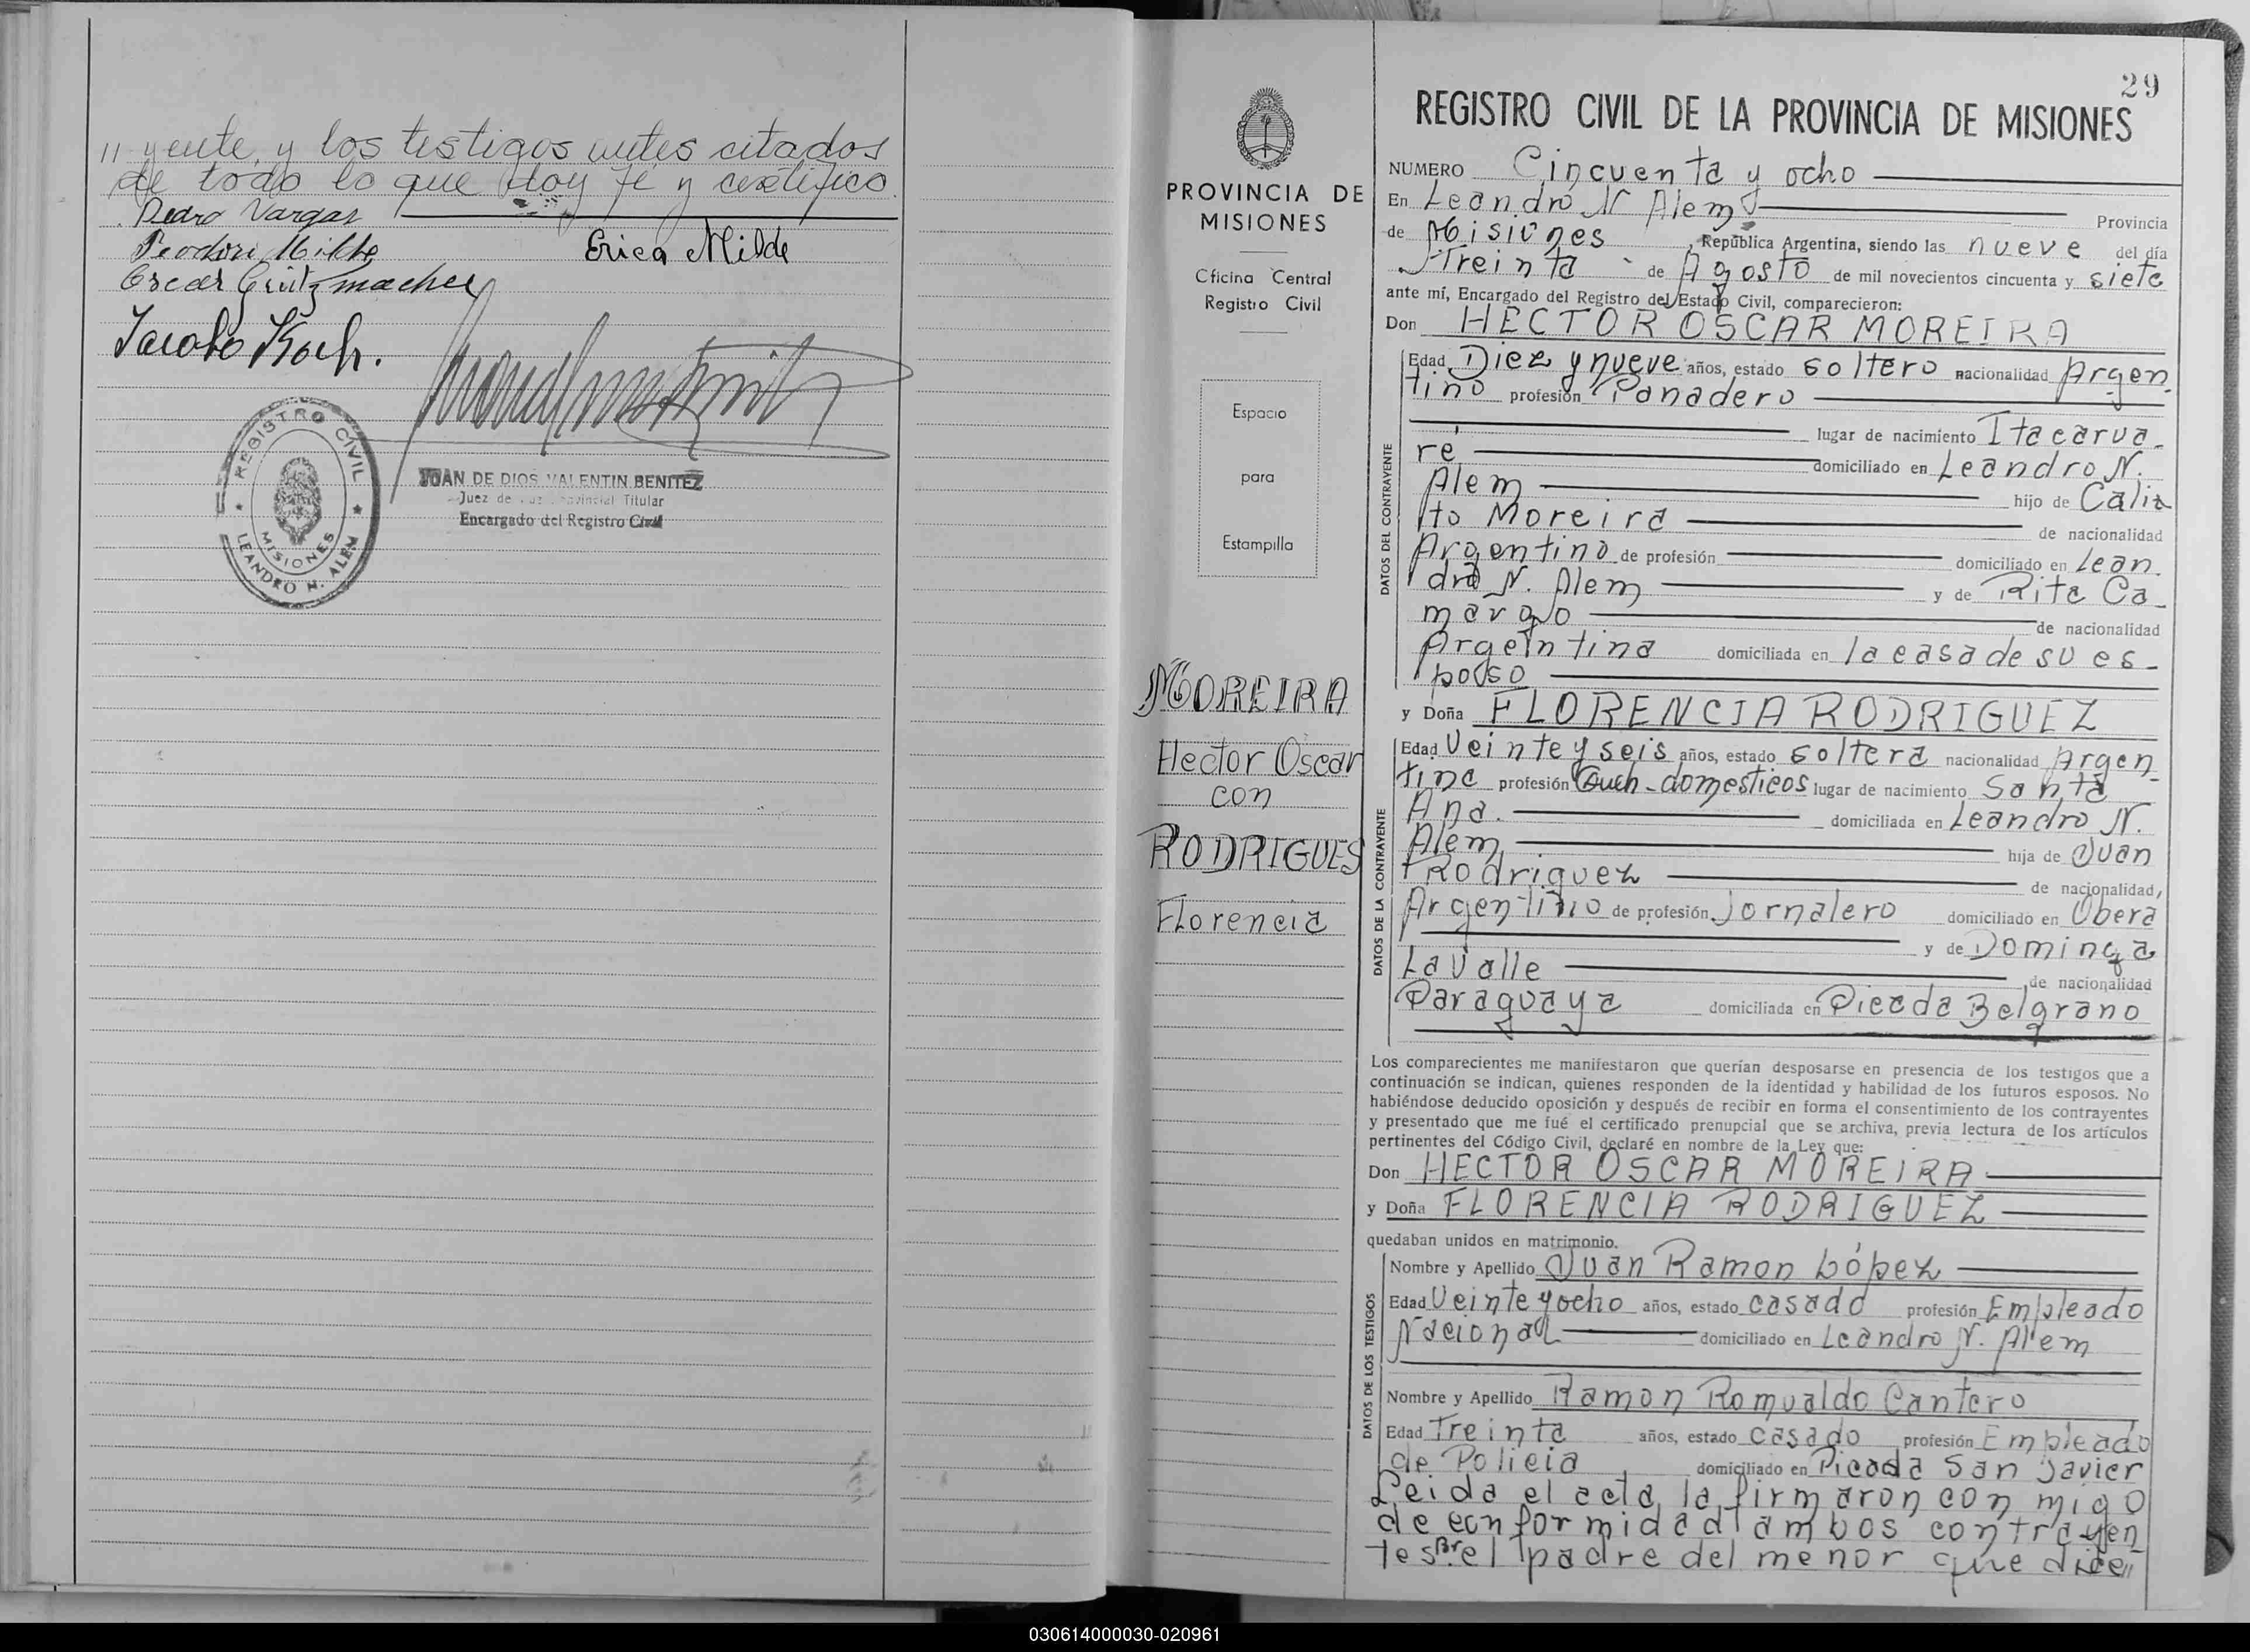 // yente, y los testigos antes citados
de todo lo que doy fé y certifico.
Pedro Vargas
Teodoro Milde
Erica Milde
Oscar Grützmacher
Jacobo Koch.
REGISTRO CIVIL
MISIONES
LEANDRO N. ALEM
JUAN DE DIOS VALENTIN BENITEZ
Juez de Paz Provincial Titular
Encargado del Registro Civil
PROVINCIA DE
MISIONES
Oficina Central
Registro Civil
Espacio
para
Estampilla
MOREIRA
Hector Oscar
con
RODRIGUES
Florencia
29
REGISTRO CIVIL DE LA PROVINCIA DE MISIONES
NUMERO Cincuenta y ocho
En Leandro N Alem Provincia
de Misiones, República Argentina, siendo las nueve del día
Treinta de Agosto de mil novecientos cincuenta y siete
ante mí, Encargado del Registro del Estado Civil, comparecieron:
Don HECTOR OSCAR MOREIRA
DATOS DEL CONTRAYENTE
Edad Diez y nueve años, estado soltero nacionalidad Argen-
tino profesión Panadero
lugar de nacimiento Itacarua-
ré domiciliado en Leandro N.
Alem hijo de Calix
to Moreira de nacionalidad
Argentino de profesión domiciliado en Lean-
dro N. Alem y de Rita Ca-
margo de nacionalidad
Argentina domiciliada en la casa de su es-
poso
y Doña FLORENCIA RODRIGUEZ
DATOS DE LA CONTRAYENTE
Edad Veinte y seis años, estado soltera nacionalidad Argen-
tina profesión Queh-domesticos lugar de nacimiento Santa
Ana. domiciliada en Leandro N.
Alem hija de Juan
Rodriguez de nacionalidad,
Argentino de profesión Jornalero domiciliado en Oberá
y de Dominga
Lavalle de nacionalidad
Paraguaya domiciliada en Picada Belgrano
Los comparecientes me manifestaron que querían desposarse en presencia de los testigos que a
continuación se indican, quienes responden de la identidad y habilidad de los futuros esposos. No
habiéndose deducido oposición y después de recibir en forma el consentimiento de los contrayentes
y presentado que me fué el certificado prenupcial que se archiva, previa lectura de los artículos
pertinentes del Código Civil, declaré en nombre de la Ley que:
Don HECTOR OSCAR MOREIRA
y Doña FLORENCIA RODRIGUEZ
quedaban unidos en matrimonio.
DATOS DE LOS TESTIGOS
Nombre y Apellido Juan Ramon López
Edad Veinte y ocho años, estado casado profesión Empleado
Nacional domiciliado en Leandro N. Alem
Nombre y Apellido Ramon Romualdo Cantero
Edad Treinta años, estado casado profesión Empleado
de Policia domiciliado en Picada San Javier
Leida el acta la firmaron con migo
de conformidad ambos contrayen-
tes el padre del menor que dice//
030614000030-020961